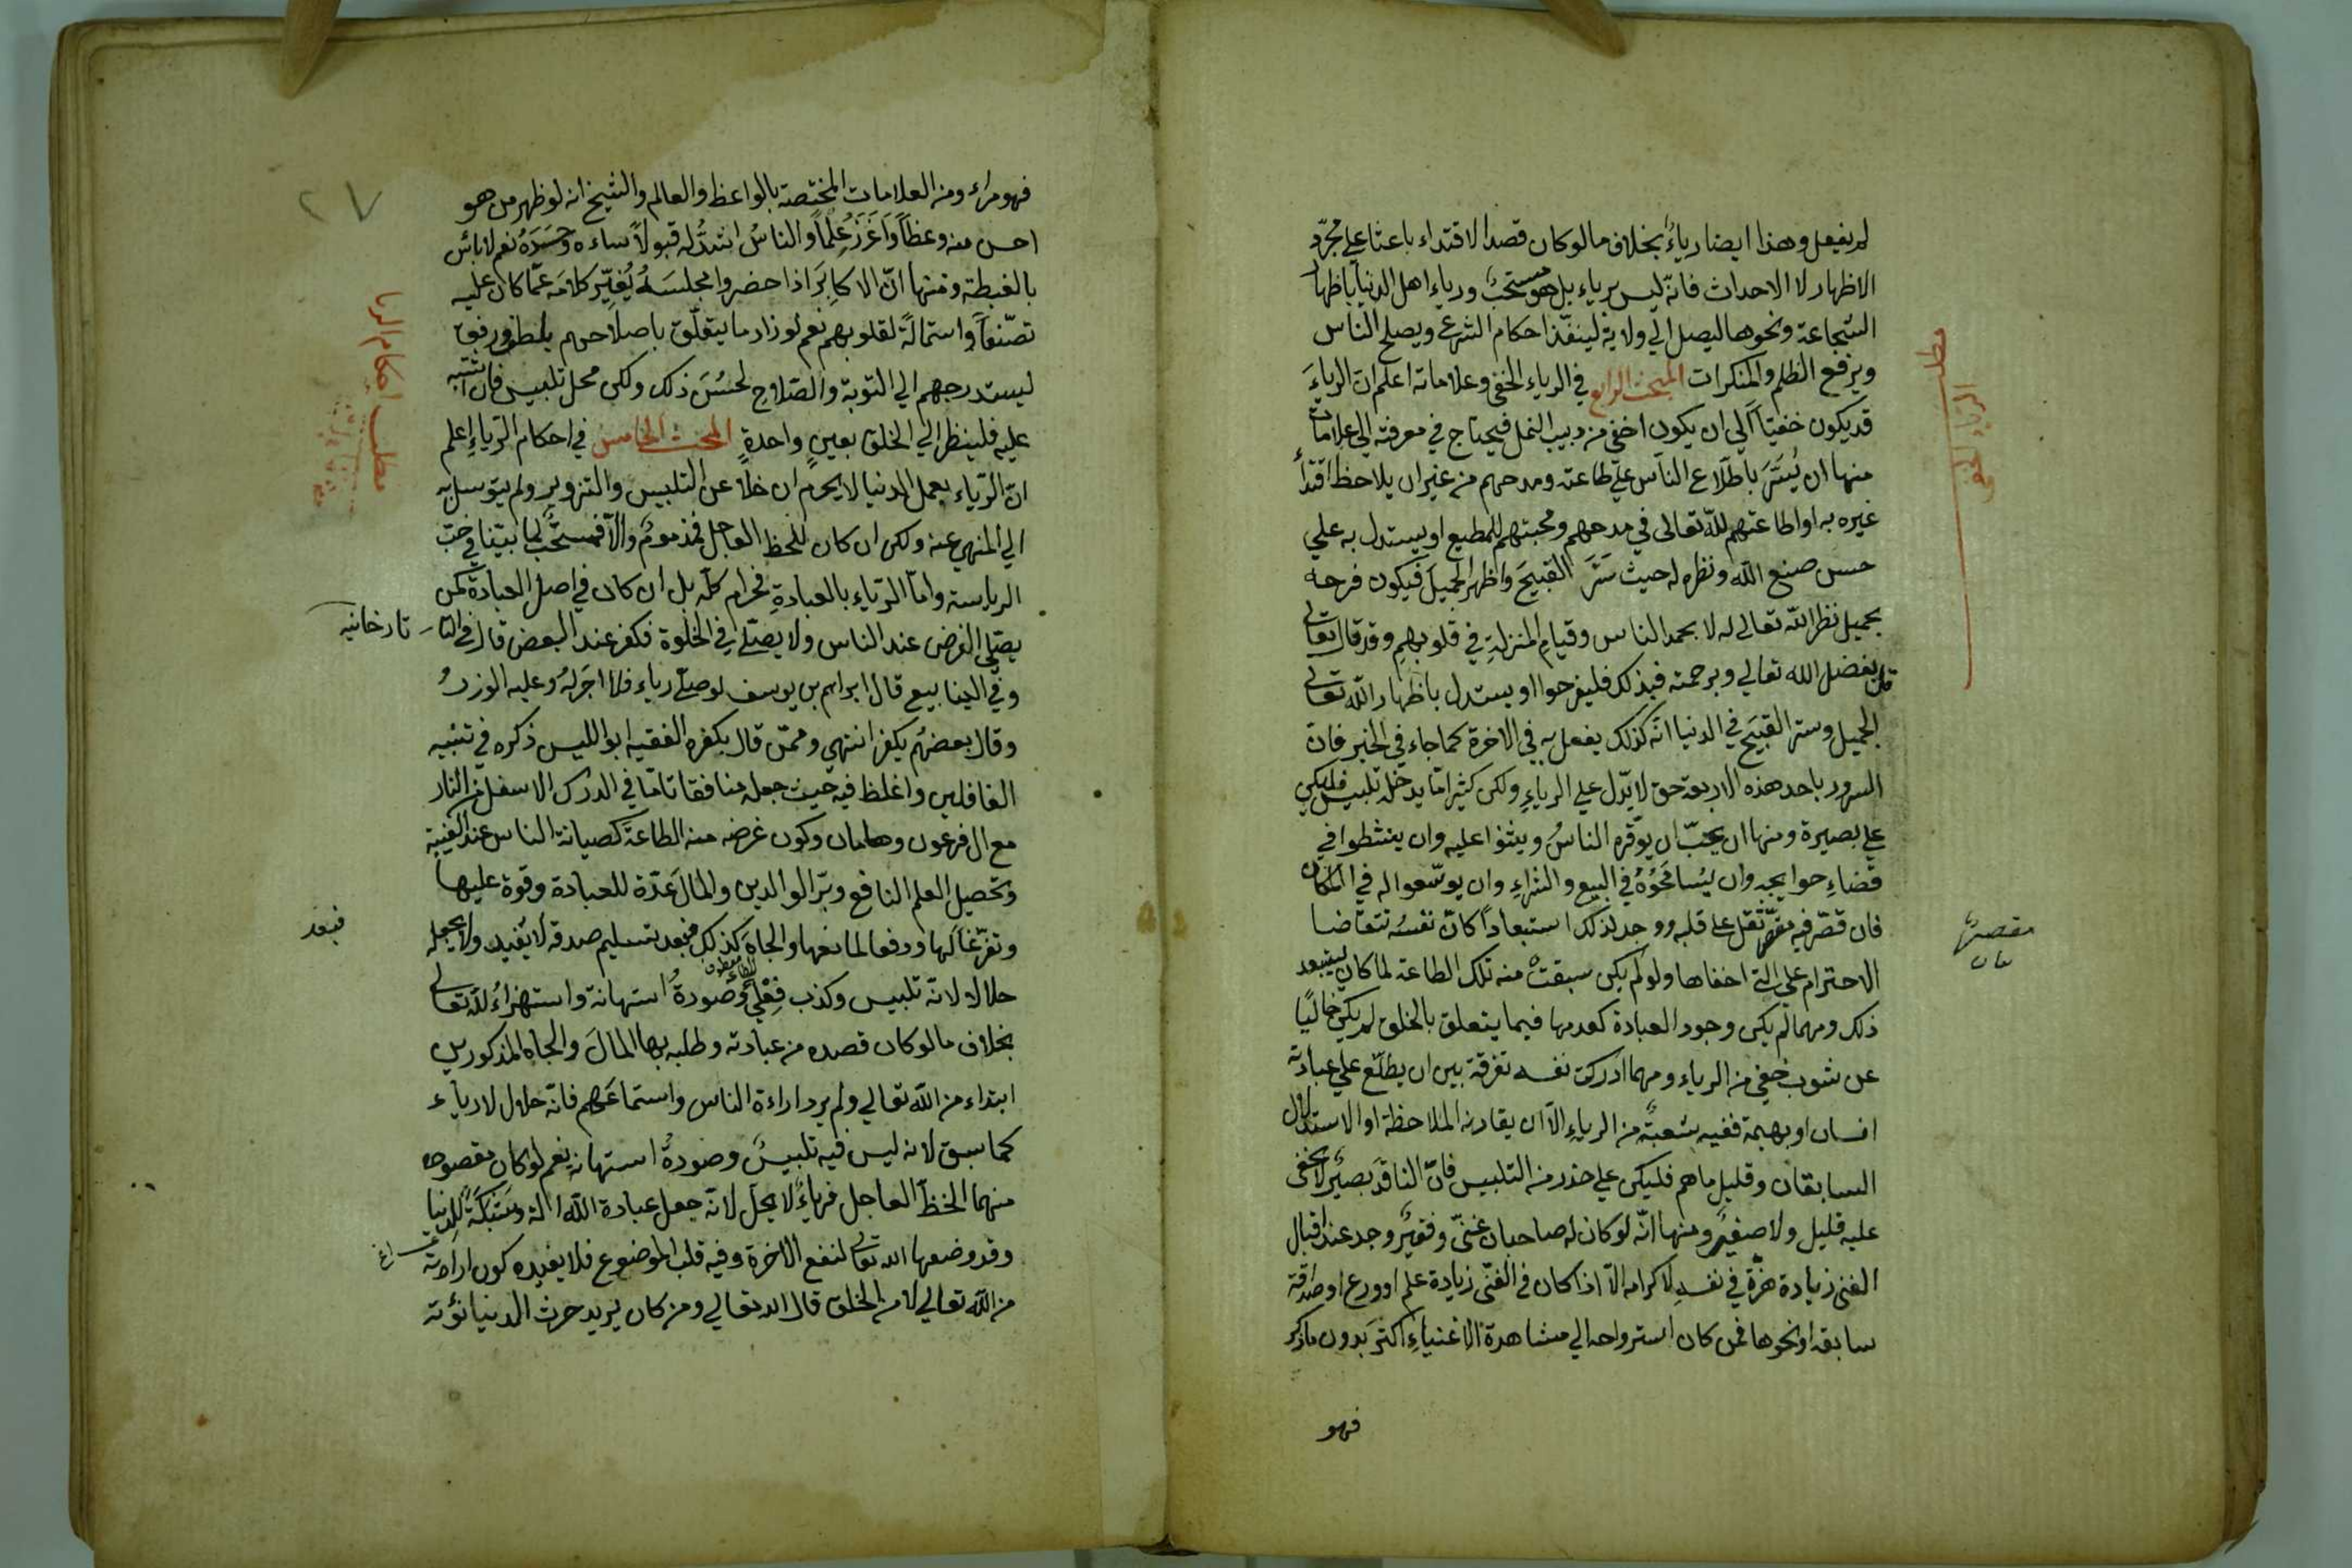 لم يفعل وهذا ايضا رياءٌ بخلاف ما لو كان قصد الاقتداء باعثا علي مجرّد
الاظهار لا الاحداث فانّه ليس برياء بل هو مستحبٌ ورياء اهل الدنيا باظهار
الشجاعة ونحوها ليصل الي ولاية لينفّذ احكام الشرع ويصلح الناس
ويرفع الظلم والمنكرات المبحث الرابع في الرياء الخفي وعلاماته اعلم ان الرياءَ
قد يكون خفيّاً الي ان يكون اخفي من دبيب النمل فيحتاج في معرفته الي علامات
منها ان يُسَرَّ باطّلاع الناس علي طاعته ومدحهم من غير ان يلاحظ اقتداءَ
غيره به او اطاعتهم للّه تعالى في مدحهم ومحبتهم للمطيع او يستدل به علي
حسن صنع اللّه ونظره له حيث ستر القبيحَ واظهر الجميلَ فيكون فرحه
بجميل نظر اللّه تعالي له لا بحمد الناس وقيام المنزلةِ في قلوبهم وقد قال تعالى
قل بفضل الله تعالي وبرحمته فبذلك فليفرحوا او يستدل باظهار اللّه تعالى
الجميل وستر القبيح في الدنيا انّه كذلك يفعل به في الاخرة كما جاء في الخبر فان
السرور باحد هذه الاربعة حق لا يدّل علي الرياءِ ولكن كثيرا مّا يدخله تلبيس فليكن
علي بصيرة ومنها ان يحبّ ان يوقّره الناسُ ويثنوا عليه وان ينشطوا في
قضاءِ حوايجه وان يُسامحوُهُ في البيع والشراءِ وان يوسّعوا له في المكان
فان قصّر فيه مقصّر ثقل علي قلبه ووجد لذلك استبعاداً كانّ نفسُه تتقاضا
الاحترام علي التي اخفاها ولو لم يكن سبقت منه تلك الطاعة لما كان يستبعد
ذلك ومهما لم يكن وجود العبادة كعدمها فيما يتعلق بالخلق لم يكن خاليًا
عن شوب خفي من الرياء ومهما ادركت نفسه تفرقة بين ان يطلّع علي عبادته
انسان او بهيمة ففيه شعبةٌ من الرياءِ الاّ ان يقارنه الملاحظة او الاستدلال
السابقان وقليل ما هم فليكن علي حذر من التلبيس فانّ الناقدَ بصيرٌ لا يخفى
عليه قليل ولا صغيرٌ ومنها انّه لو كان له صاحبان غنىٌ وفقيرٌ وجد عند اقبال
الغنى زيادة هزّة في نفسه لاكرامه الاّ اذا كان في الغنّى زيادة علم او ورع او صداقة
سابقة او نحوها فمن كان استرواحه الي مشاهدة الاغنياءِ اكثرَ بدون ما ذكر
فهو
مطلب
الرياء الخفي
مقصرتها
فهو مراء ومن العلامات المختصة بالواعظ والعالم والشيخ انه لو ظهر من هو
احسن منه وعظاً وَاَغزَرُ عِلماً والناسُ اشدُّ له قبولاً ساءه وحَسَدَهُ نعم لا بأس
بالغبطة ومنها انّ الاكابِرَ اذا حضروا مجلسَهُ يُغيِّر كلامَه عمّا كان عليه
تصنّعاً واستمالةً لقلوبهم نعم لو زاد ما يتعلّق باصلاحهم بلطف ورفق
ليستدرجهم الي التوبة والصّلاح لحسُنَ ذلك ولكن محل تلبيس فان اشتبه
عليه فلينظر الي الخلق بعينٍ واحدةٍ المبحث الخامس في احكام الرّياءِ اعلم
انّ الرّياء بعمل الدنيا لا يحرم ان خلا عن التلبيس والتزوير ولم يتوسل به
الي المنهي عنه ولكن ان كان للحظ العاجل فمذمومٌ والاّ فمستحّبٌ لما بيّنا في حبّ
الرياسة وامّا الرّياء بالعبادةِ فحرام كلّه بل ان كان في اصل العبادة كمن
يصلّي الفرض عند الناس ولا يصلّي في الخلوة فكفر عند البعض قال في التا
وفي الينابيع قال ابراهيم بن يوسف لو صلّي رياء فلا اجرَ لهُ وعليه الوزرُ
وقال بعضهُم يكفر انتهي وممّن قال بكفره الفقيه ابو الليس ذكره في تنبيه
الغافلين واغلظ فيه حيث جعله منافقا تامّا في الدرك الاسفل من النار
مع ال فرعون وهامان وكون غرضه منه الطاعةَ كصيانة الناس عند الغيبة
وتحصيل العلم النافع وبرّ الوالدين والمالَ عدّة للعبادة وقوة عليها
وتفرّغاً لها ودفعا لمانعها والجاهَ كذلك فبعد تسليم صدقه لا يُفيد ولا يجعله
حلالا لانّه تلبيس وكذب فِعْلِيٌّ وصورةُ استهانة واستهزاءٌ للّه تعالى
بخلاف ما لو كان قصده من عبادته وطلبه بها المالَ والجاه المذكورين
ابتداء من اللّه تعالي ولم يرد اراءة الناس واستماعَهم فانّه حلال لا رياء
كما سبق لانه ليس فيه تلبيسٌ وصورةُ استهانة نعم لو كان مقصوده
منهما الحظّ العاجل فرياءٌ لا يحلّ لانّه جعل عبادة اللّه الة وشبكَةً للدنيا
وقد وضعها الله تعالى لنفع الاخرة وفيه قلب الموضوع فلا يفيده كون ارادته
من اللّه تعالي لا من الخلق قال الله تعالي ومن كان يريد حرث الدنيا نؤته
٢٧
مطلب احكام الريا
تارخانيه
فبعد